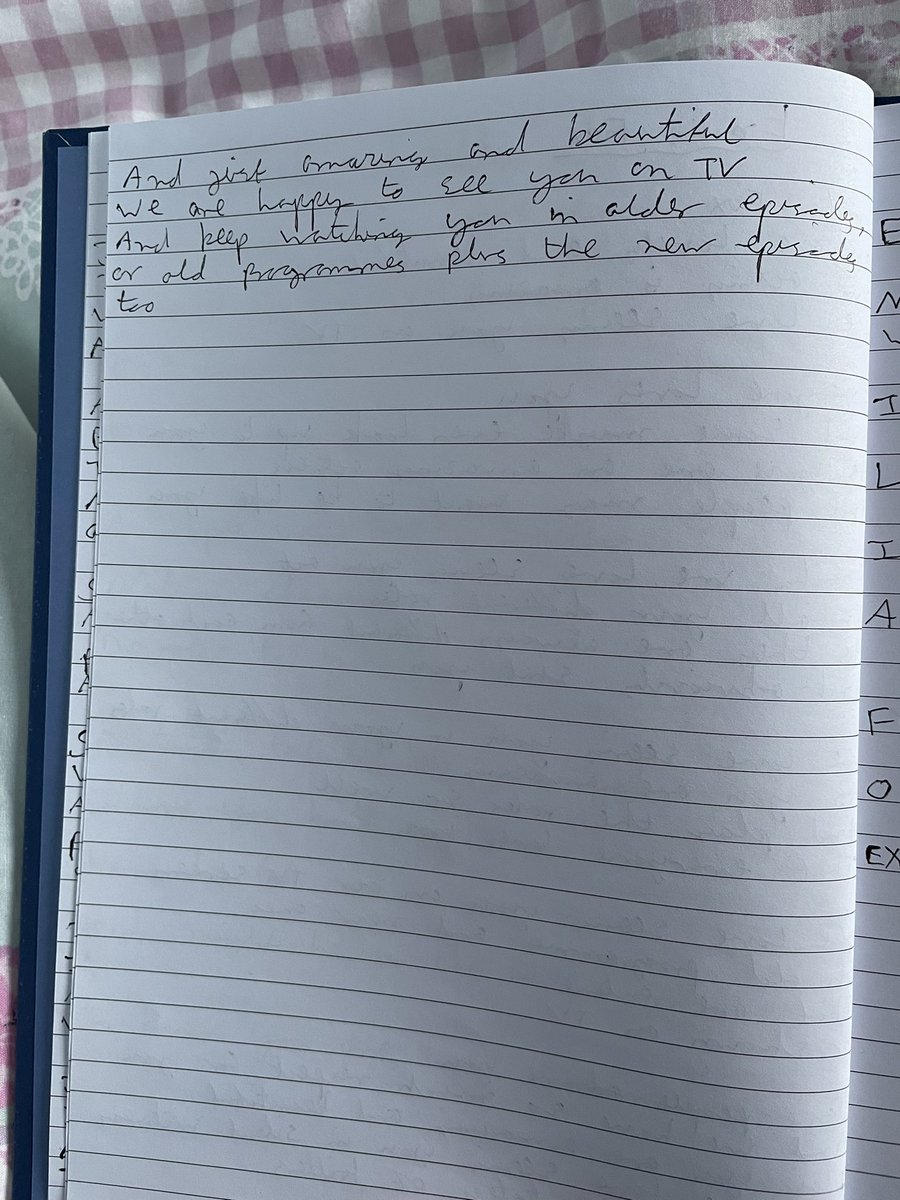 And just amazing and beautiful
We are happy to see you on TV
And keep watching you in older episodes,
or old programmes plus the new episodes
too
E
N
W
I
L
I
A
F
O
EX